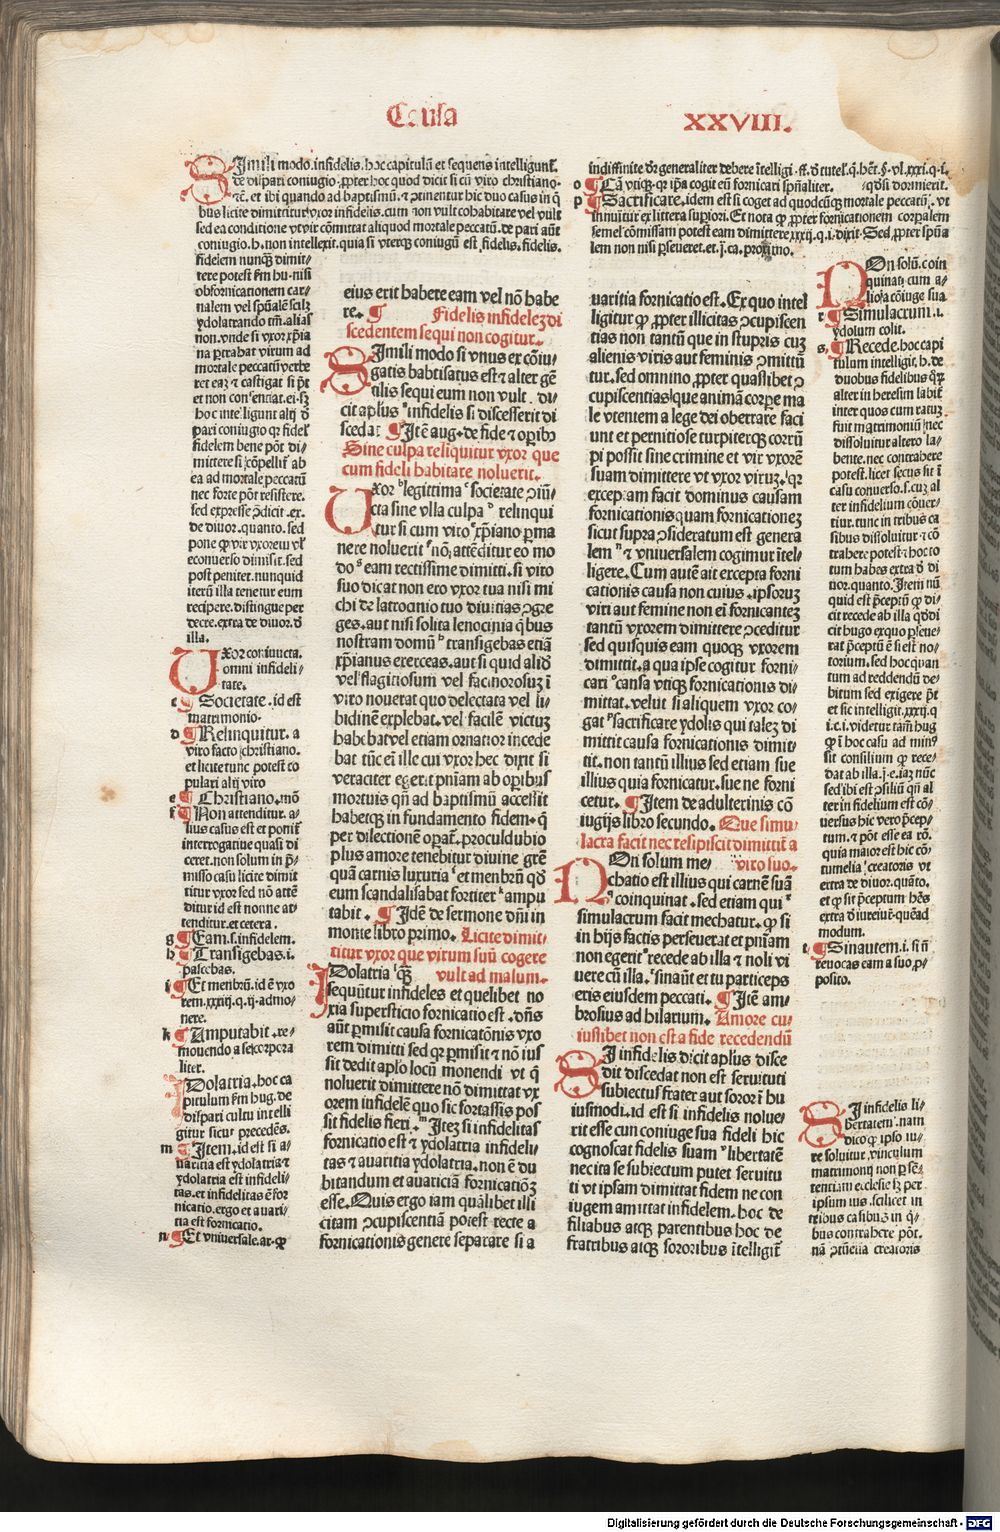 Causa
XXVIII.
Simili modo.infidelis.hoc capitulũ et sequens intelligunt̃
de dispari coniugio.ꝓpter hoc quod dicit si cũ viro christiano
et ibi quando ad baptismũ. ⁊ ꝯtinentur hic duo casus in q̃
bus licite dimittitur vxor infidelis.cum non vult cohabitare vel vult
sed ea conditione vt vir cõmittat aliquod mortale peccatũ.de pari aũt
coniugio.h.non intellexit.quia si vterq; coniugũ est fidelis.fidelis.
fidelem nunq̃ dimit⸗
tere potest ẜm hu.nisi
ob fornicationem car⸗
nalem vel spũalẽ scilz
ydolatrando tm̃.alias
non.vnde si vxor xp̃ia
na ꝑtrahat virum ad
mortale peccatũ verbe
ret eaz ⁊ castigat si põt
et non consentiat.ei.sz
hoc intelligunt alij ð
pari coniugio q; fidel̃
fidelem bene põt di⸗
mittere si cõpellit̃ ab
ea ad mortale peccatũ
nec forte põt resistere.
sed expresse ꝯdicit.ex.
de diuor.quanto.sed
pone ꝙ vir vxorem vl̃
econuerso dimisit.sed
post penitet.nunquid
iterũ illa tenetur eum
recipere.distingue per
decre.extra de diuor.ð
illa.
Vxor coniuncta.
omni infideli⸗
tate.
c Societate.id est
matrimonio.
d Relinquitur.a
viro facto christiano.
et licite tunc potest co
pulari alij viro
e Christiano.mõ
f Non attenditur.a⸗
lius casus est et ponit̃
interrogatiue quasi di
ceret.non solum in p̃⸗
misso casu licite dimit
titur vxor sed nõ attẽ
ditur id est nonne at⸗
tenditur.et cetera.
g Eam.s.infidelem.
h Transigebas.i.
pascebas.
i Et menbrũ.id ẽ vxo
rem.xxxij.q.ij.admo⸗
nere.
k Amputabit.re⸗
mouendo a se corpora
liter.
Idolatria.hoc ca
pitulum ẜm hug.de
dispari cultu intelli
gitur sicut precedẽs.
m Item.id est si a⸗
uaritia est ydolatria ⁊
ydolatria est infideli⸗
tas.et infidelitas ẽ for
nicatio.ergo et auari⸗
tia est fornicatio.
n Et vniuersale.ar.ꝙ
eius erit habere eam vel nõ habe
re. Fidelis infidelez di
scedentem sequi non cogitur.
Simili modo si vnus ex cõiu⸗
gatis babtisatus est ⁊ alter gẽ
tilis sequi eum non vult. di⸗
cit ap̃lus infidelis si discesserit di
scedat Itẽ aug.de fide ⁊ operib⁹
Sine culpa reliquitur vxor que
cum fideli habitare noluerit.
Vxor legittima societate ꝯiũ⸗
cta sine vlla culpa relinqui
tur si cum viro xp̃iano ꝑma
nere noluerit nõ, attẽditur eo mo
do eam rectissime dimitti.si viro
suo dicat non ero vxor tua nisi mi
chi de latrocinio tuo diuitias ꝯgre
ges.aut nisi solita lenocinia q̃bus
nostram domũ transigebas etiã
xp̃ianus exerceas.aut si quid aliđ
vel flagitiosum vel facinorosuz ĩ
viro nouerat quo delectata vel li⸗
bidinẽ explebat.vel facilẽ victuz
habebat vel etiam ornatior incede
bat tũc eĩ ille cui vxor hec dixit si
veraciter egerit pniam ab operib⁹
mortuis qñ ad baptismũ accessit
habetq; in fundamento fidem.q̃
per dilectionẽ operat̃.proculdubio
plus amore tenebitur diuine grẽ
quã carnis luxuria et menbrũ qđ
eum scandalisabat fortiter ampu
tabit. Idẽ de sermone dñi in
monte libro primo. Licite dimit⸗
titur vxor que virum suũ cogere
vult ad malum.
Idolatria q̃
sequũtur infideles et quelibet no
xia supersticio fornicatio est.dñs
aũt ꝑmisit causa fornicatõnis vxo
rem dimitti sed qr ꝑmisit ⁊ nõ ius
sit dedit aplo locũ monendi vt q̃
noluerit dimittere nõ dimittat vx
orem infidelẽ quo sic fortassis pos
sit fidelis fieri. Itez si infidelitas
fornicatio est ⁊ ydolatria infideli⸗
tas ⁊ auaritia ydolatria.non ẽ du
bitandum et auariciã fornicatiõz
esse.Quis ergo iam quãlibet illi
citam ꝯcupiscentiã potest recte a
fornicationis genere separare si a
indiffinite ðr generaliter debere ĩtelligi.ff.ð tutel̃.q.hẽt.§.vl.xxxi.q.i.
o Cã vtiq;.qr ip̃a cogit eũ fornicari spũaliter. qđsi dormierit.
p Sacrificare.idem est si coget ad quodcũq; mortale peccatũ. vt
innuitur ex littera supiori.Et nota ꝙ ꝓpter fornicationem corpalem
semel cõmissam potest eam dimittere.xxxij.q.i.dixit.Sed ꝓpter spũa
lem non nisi ꝑseueret.et.j.ca.proximo.
uaritia fornicatio est.Ex quo intel
ligitur ꝙ ꝓpter illicitas ꝯcupiscen
tias non tantũ que in stupris cuz
alienis viris aut feminis ꝯmittũ
tur.sed omnino ꝓpter quaslibet ꝯ
cupiscentias que animã corpe ma
le vtentem a lege dei oberrare faci
unt et pernitiose turpiterq; corrũ
pi possit sine crimine et vir vxorẽ
suam dimittere vt vxor viruz.qr
exceptam facit dominus causam
fornicationis quam fornicationez
sicut supra ꝯsideratum est genera
lem ⁊ vniuersalem cogimur ĩtel⸗
ligere.Cum autẽ ait excepta forni
cationis causa non cuius.ipsoruz
viri aut femine non eĩ fornicantez
tantũ vxorem dimittere ꝯceditur
sed quisquis eam quoq; vxorem
dimittit.a qua ipse cogitur forni⸗
cari cansa vtiq; fornicationis di⸗
mittat.velut si aliquem vxor co⸗
gat sacrificare ydolis qui talez di
mittit causa fornicationis dimit⸗
tit.non tantũ illius sed etiam sue
illius quia fornicatur.sue ne forni
cetur. Item de adulterinis cõ
iugijs libro secundo. Que simu⸗
lacra facit nec resipiscit dimittit̃ a
viro suo.
Non solum me⸗
chatio est illius qui carnẽ suã
coinquinat.sed etiam qui
simulacrum facit mechatur.ꝙ si
in hijs factis perseuerat et pniam
non egerit recede ab illa ⁊ noli vi
uere cũ illa.sinaũt et tu particeps
eris eiusdem peccati. Itẽ am⸗
brosius ad hilarium. Amore cu⸗
iuslibet non est a fide recedendũ
Si infidelis dicit aplus disce
dit discedat non est seruituti
subiectus frater aut soror ĩ hu
iusmodi.id est si infidelis nolue⸗
rit esse cun coniuge sua fideli hic
cognoscat fidelis suam libertatẽ
ne cita se subiectum putet seruitu
ti vt ipsam dimittat fidem ne con
iugem amittat infidelem.hoc de
filiabus atq; parentibus hoc de
fratribus atq; sororibus ĩtelligit̃
Non solũ.coin
quinat;cum a⸗
lio ꝗ̃ cõiuge sua
r Simulacrum.i.
ydolum colit.
s Recede.hoc capi
tulum intelligit̃.h.de
duobus fidelibus q̃ꝝ
alter in heresim labit̃
inter quos cum ratuz
fuit matrimoniũ nec
dissoluitur altero la⸗
bente.nec contrahere
potest.licet secus sit ĩ
casu conuerso.s.cuz al
ter infidelium cõuer⸗
titur.tunc in tribus ca
sibus dissoluitur ⁊ cõ
trahere potest ⁊ hoc to
tum habes extra ð di
uor.quanto.Item nũ
quid est p̃ceptũ ꝙ di⸗
cit recede ab illa qđ di
cit hugo ex quo ꝑseue⸗
rat p̃ceptũ ẽ si est no⸗
torium.sed hoc quan
tum ad reddendũ de⸗
bitum sed exigere põt
et sic intelligit̃.xxxij.q
i.c.i.videtur tam̃ hug
ꝙ ĩ hoc casu ad min⁹
sit consilium ꝙ rece⸗
dat ab illa.j.e.iaz nũc
sed ibi est ꝯsiliũ qñ al
ter infidelium est cõ⸗
uersus hic vero p̃cep⸗
tum.⁊ põt esse ea rõ.
quia maior est hic cõ⸗
tumelia creatoris vt
extra de diuor.quãto.
et ꝙ sit p̃ceptum hẽs
extra ð iureiur̃.quẽad
modum.
t Sinautem.i.si ñ
reuocas eam a suo ꝓ⸗
posito.
Si infidelis li⸗
bertatem.nam
dico ꝙ ipso iu⸗
re soluitur.vinculum
matrimonij non ꝑ sẽ⸗
tentiam ecclesie sz per
ipsum ius.scilicet in
tribus casibus in q̃⸗
bus contrahere põt.
nã ꝯtumelia creatoris
Digitalisierung gefördert durch die Deutsche Forschungsgemeinschaft - DFG